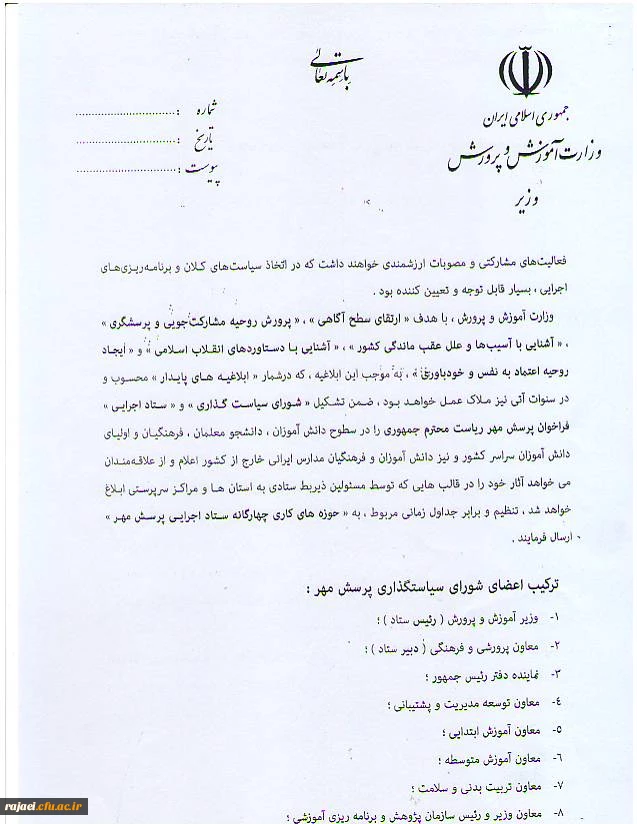 باسمه تعالی
جمهوری اسلامی ایران
وزارت آموزش و پرورش
وزیر
شماره :..............................
تاریخ :..............................
پیوست :..............................
فعالیت‌های مشارکتی و مصوبات ارزشمندی خواهند داشت که در اتخاذ سیاست‌های کلان و برنامه‌ریزی‌های
اجرایی ، بسیار قابل توجه و تعیین کننده بود .
وزارت آموزش و پرورش ، با هدف « ارتقای سطح آگاهی » ، « پرورش روحیه مشارکت‌جویی و پرسشگری »
، « آشنایی با آسیب‌ها و علل عقب ماندگی کشور » ، « آشنایی با دستاوردهای انقلاب اسلامی » و « ایجاد
روحیه اعتماد به نفس و خودباوری » ، به موجب این ابلاغیه ، که درشمار « ابلاغیه های پایدار » محسوب و
در سنوات آتی نیز ملاک عمل خواهد بود ، ضمن تشکیل « شورای سیاست گذاری » و « ستاد اجرایی »
فراخوان پرسش مهر ریاست محترم جمهوری را در سطوح دانش آموزان ، دانشجو معلمان ، فرهنگیان و اولیای
دانش آموزان سراسر کشور و نیز دانش آموزان و فرهنگیان مدارس ایرانی خارج از کشور اعلام و از علاقه‌مندان
می خواهد آثار خود را در قالب هایی که توسط مسئولین ذیربط ستادی به استان ها و مراکز سرپرستی ابلاغ
خواهد شد ، تنظیم و برابر جداول زمانی مربوط ، به « حوزه های کاری چهارگانه ستاد اجرایی پرسش مهر »
ارسال فرمایند .
ترکیب اعضای شورای سیاستگذاری پرسش مهر :
۱- وزیر آموزش و پرورش ( رئیس ستاد ) ؛
۲- معاون پرورشی و فرهنگی ( دبیر ستاد ) ؛
۳- نماینده دفتر رئیس جمهور ؛
۴- معاون توسعه مدیریت و پشتیبانی ؛
۵- معاون آموزش ابتدایی ؛
۶- معاون آموزش متوسطه ؛
۷- معاون تربیت بدنی و سلامت ؛
۸- معاون وزیر و رئیس سازمان پژوهش و برنامه ریزی آموزشی ؛
rajaei.cfu.ac.ir